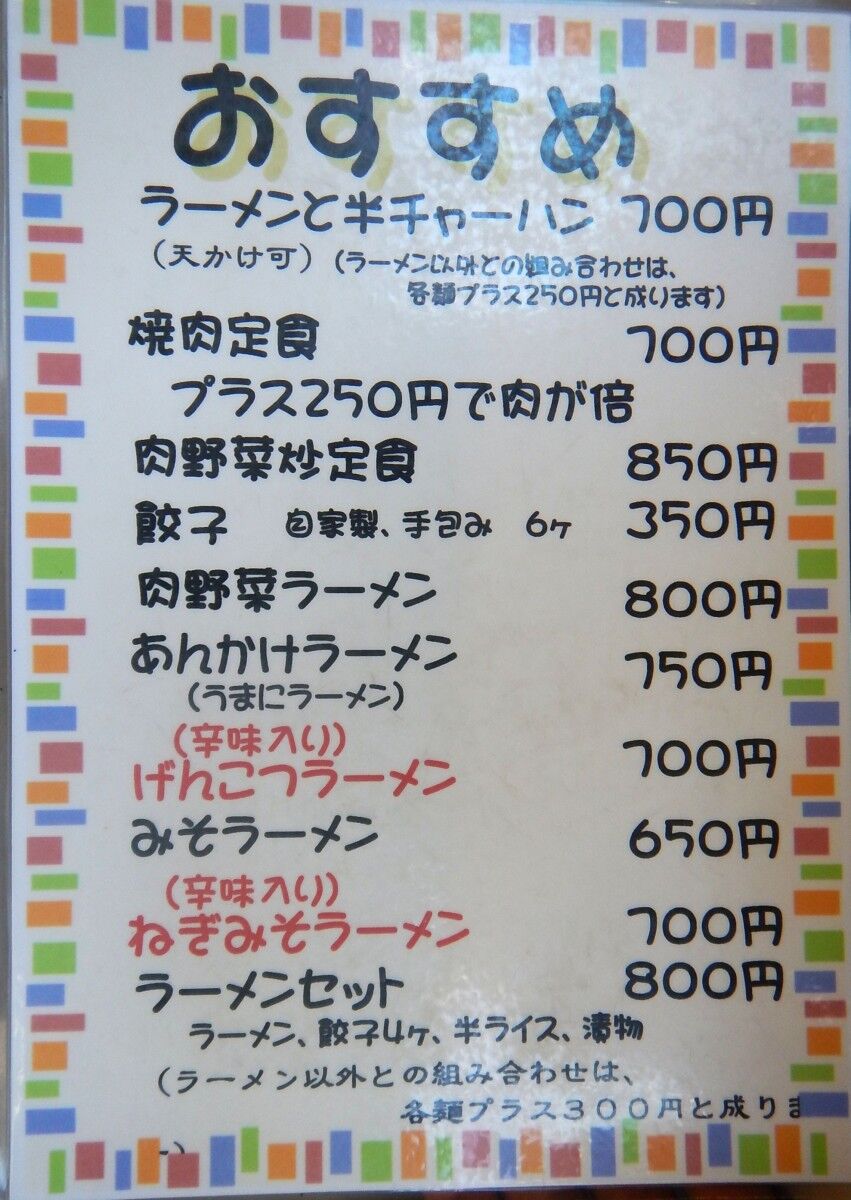 おすすめ
ラーメンと半チャーハン 700円
（天かけ可）（ラーメン以外との組み合わせは、
各麺プラス250円と成ります）
焼肉定食 700円
プラス250円で肉が倍
肉野菜炒定食 850円
餃子 自家製、手包み 6ヶ 350円
肉野菜ラーメン 800円
あんかけラーメン 750円
（うまにラーメン）
（辛味入り）
げんこつラーメン 700円
みそラーメン 650円
（辛味入り）
ねぎみそラーメン 700円
ラーメンセット 800円
ラーメン、餃子4ヶ、半ライス、漬物
（ラーメン以外との組み合わせは、
各麺プラス３００円と成りま